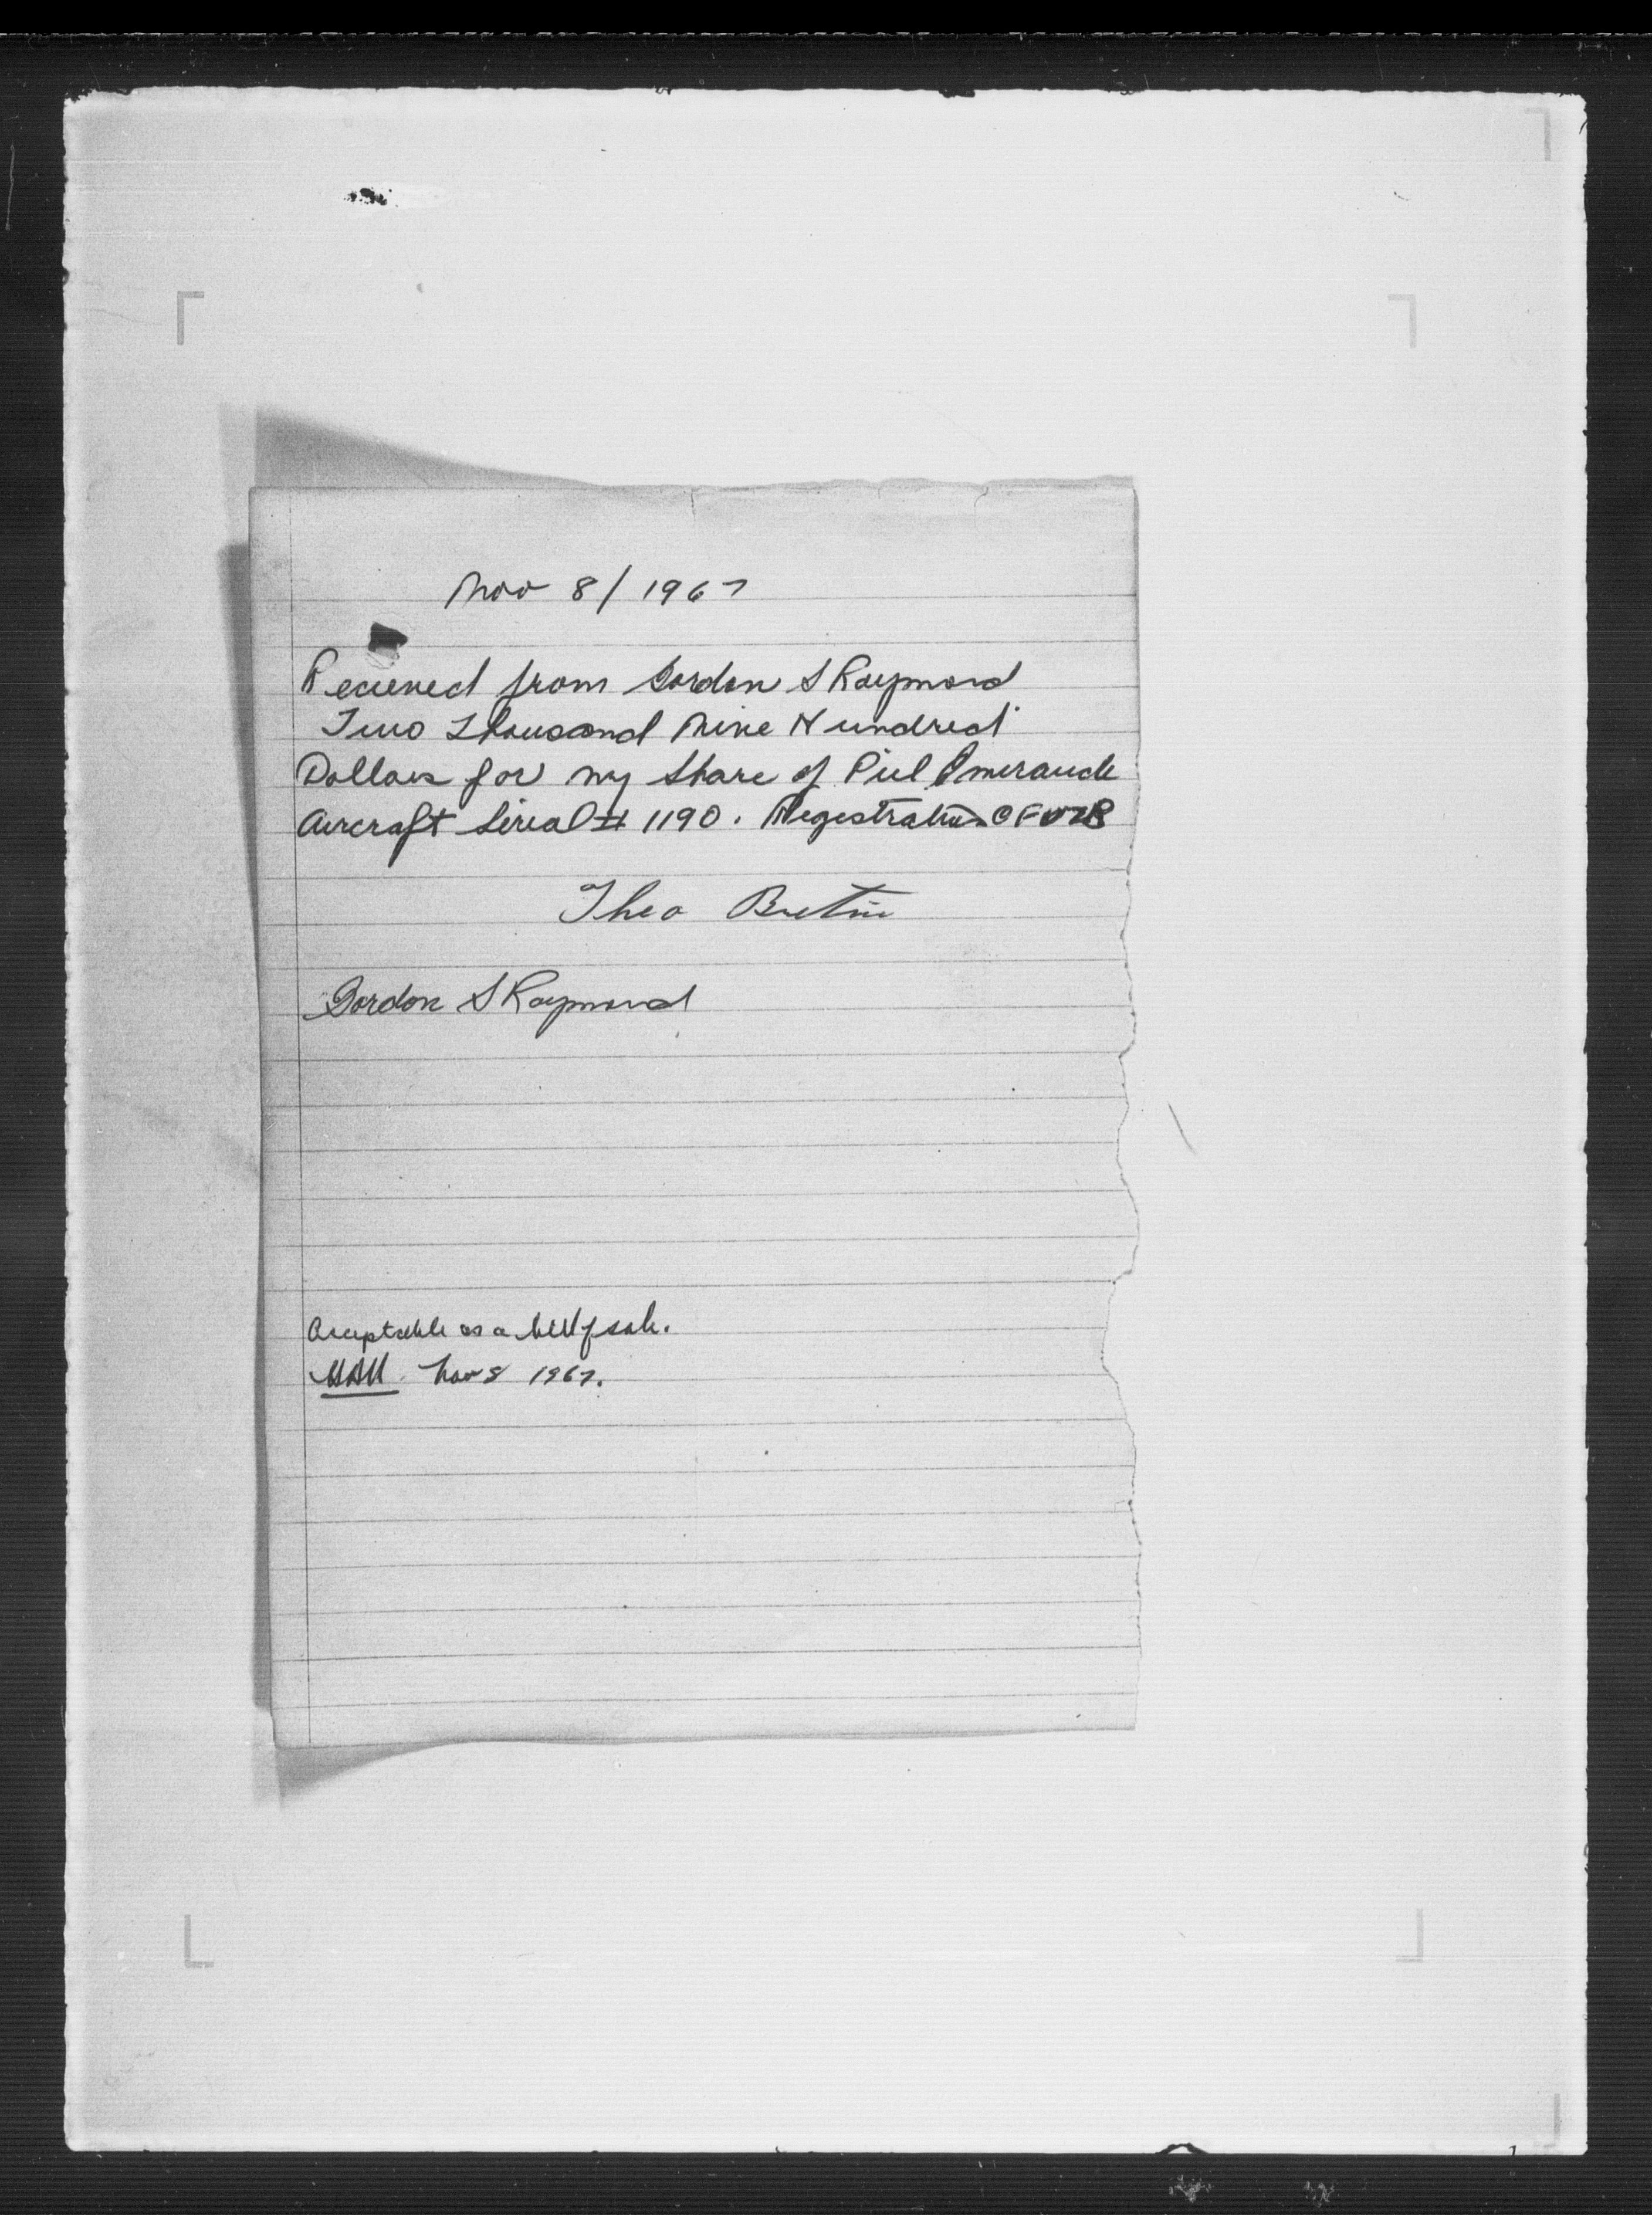 Nov 8/1967
Recieved from Gordon S Raymond
Two Thousand Nine Hundred
Dollars for my share of Piel Emeraude
Aircraft Serial # 1190. Registration CF
Theo
Gordon S Raymond
Acceptable as a bill of sale.
Nov 8 1967.